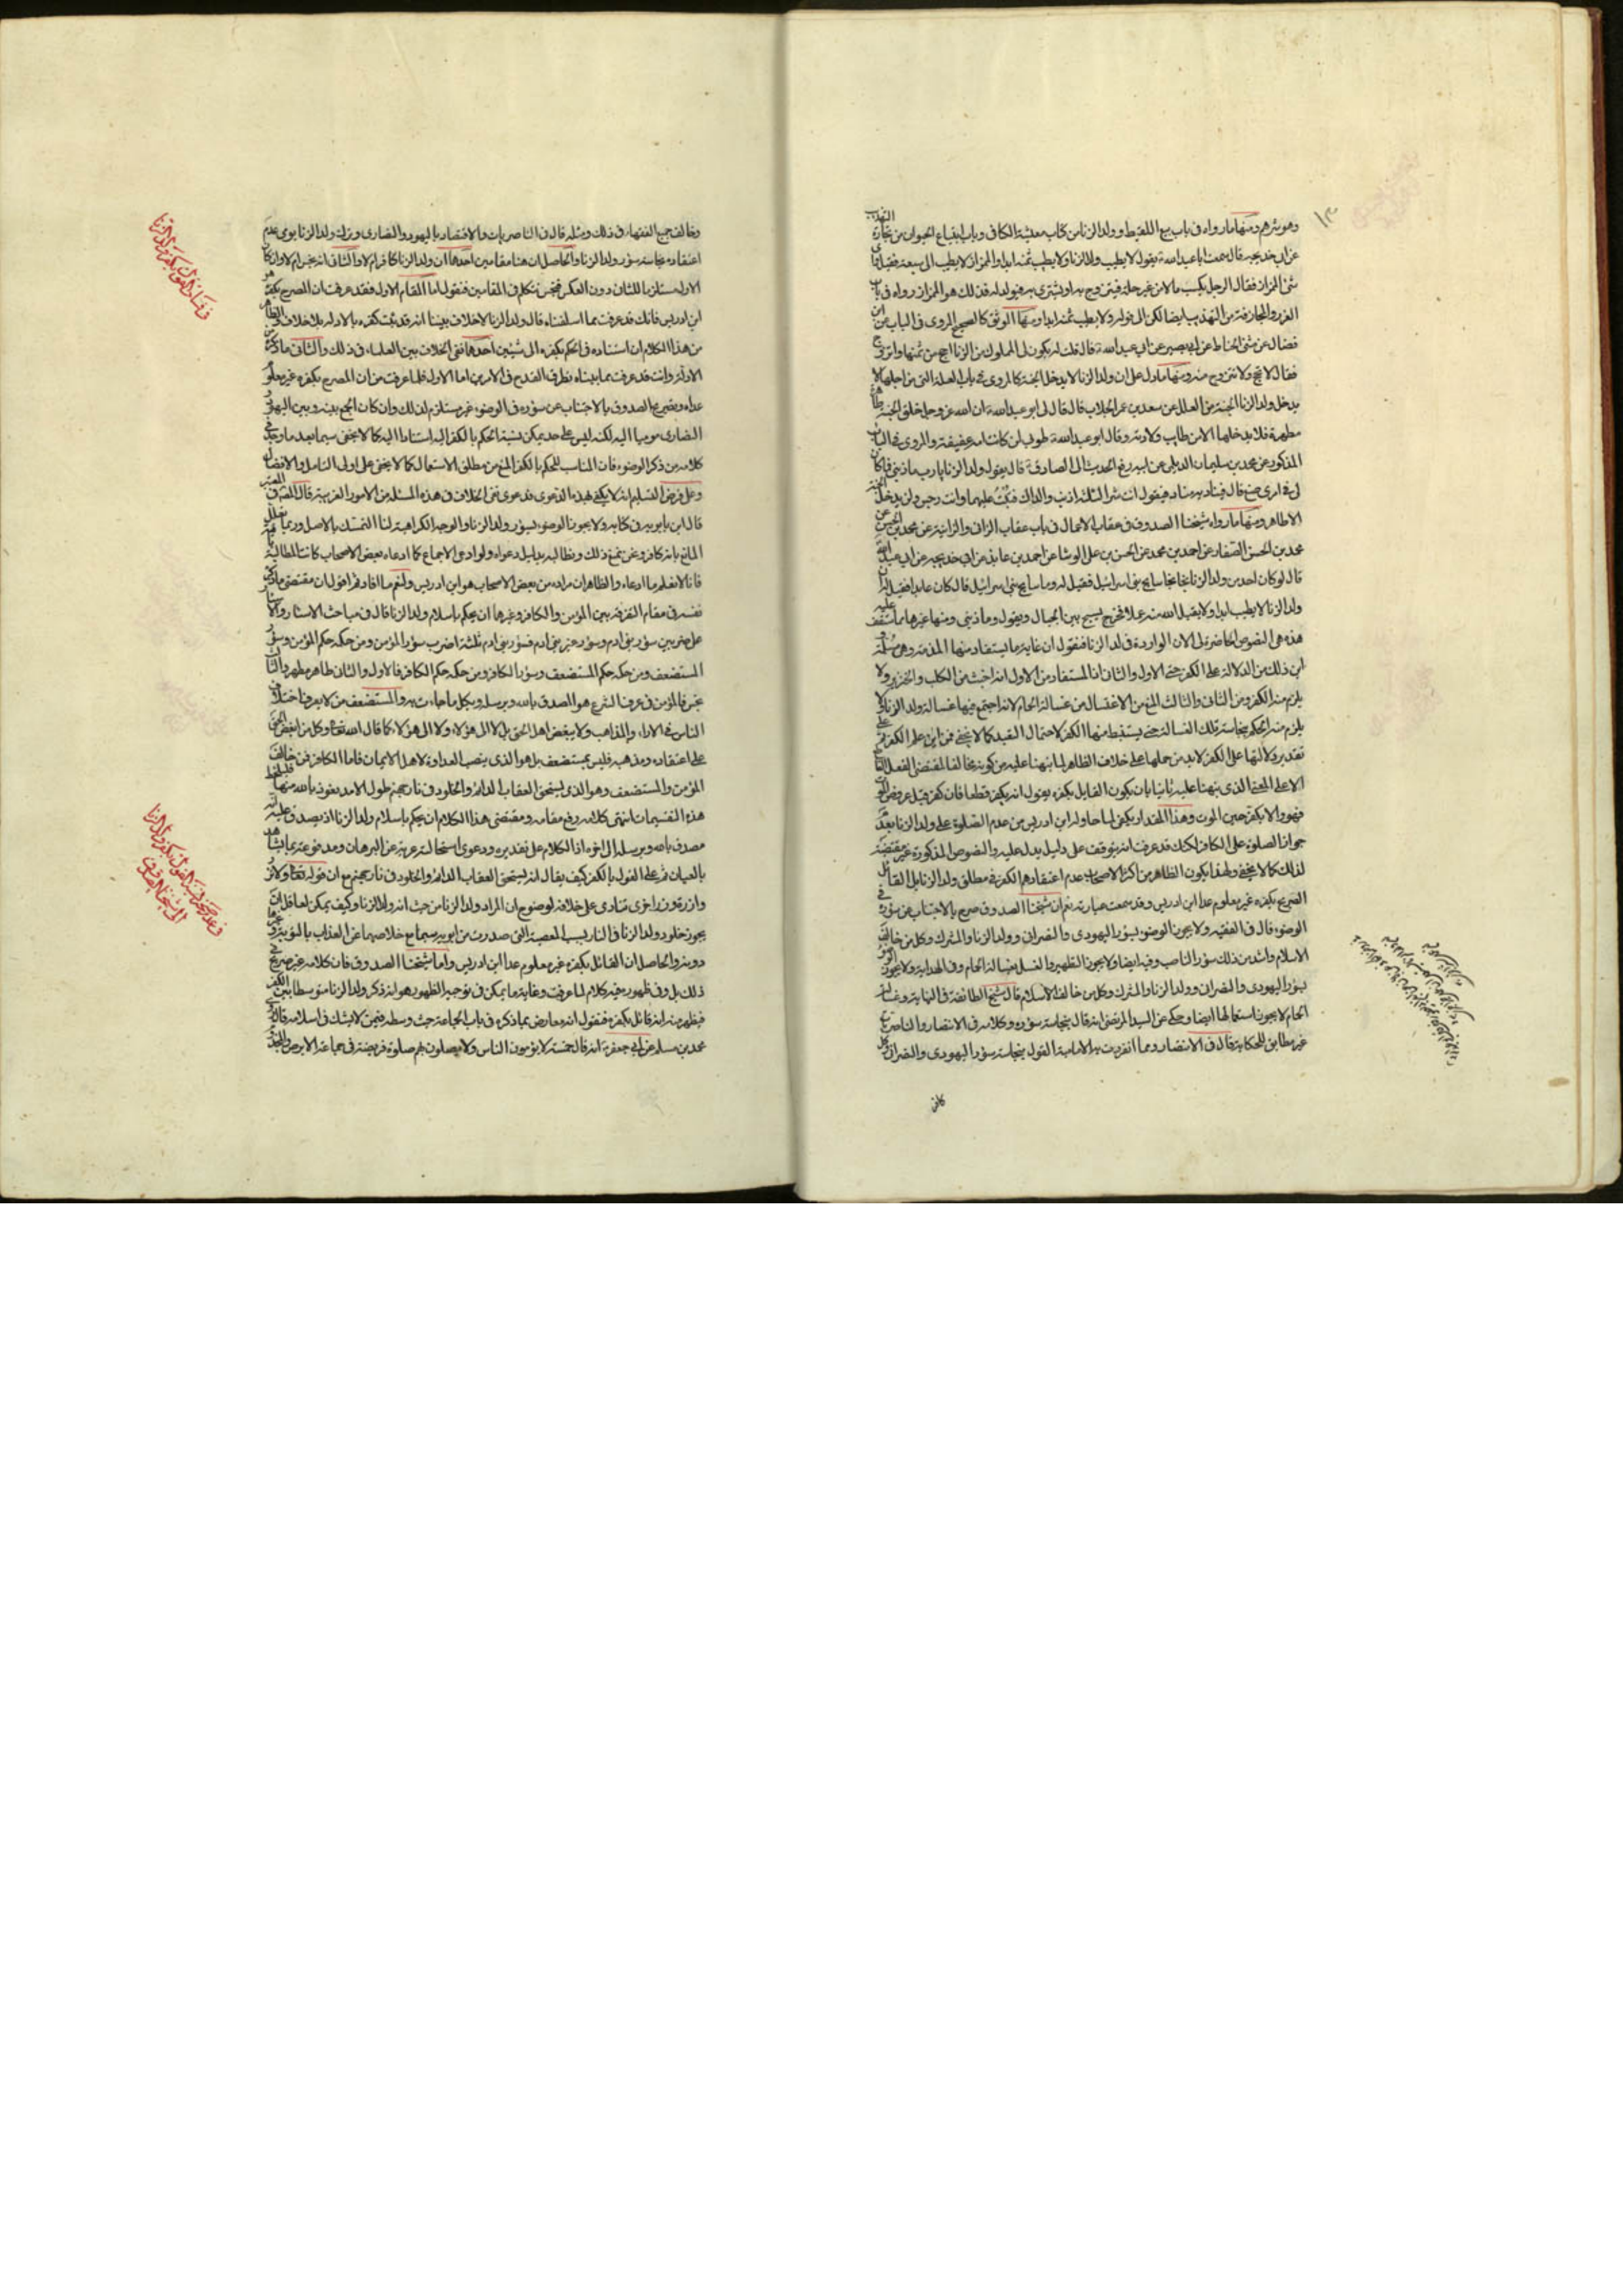 وهو شرهم ومنها ما رواه في باب بيع اللقيط وولد الزنا من كتاب معيشة الكافي وباب ابتياع الحيوان من تجارة التهذيب
عن ابي خديجة قال سمعت ابا عبد الله ع يقول لا يطيب ولد الزنا ولا يطيب ثمنه ابدا والممزاز لا يطيب الى سبعة فقيل
شئ الممزاز فقال الرجل يكسب مالا من غير حله فيتزوج به او يشتري به فيولد له فذلك هو الممزاز رواه في باب
الغرر والمجازفة من التهذيب ايضا لكن الى قوله ولا يطيب ثمنه ابدا ومنها الموثق كالصحيح المروي في الباب عن ابن
فضال عن مثنى الحناط عن ابي بصير عن ابي عبد الله ع قال قلت له يكون لي المملوك من الزنا احج من ثمنها واتزوج
فقال لا تحج ولا تتزوج منه ومنها ما دل على ان ولد الزنا لا يدخل الجنة كالمروي في باب العلة التي من اجلها لا
يدخل ولد الزنا الجنة من العلل عن سعد بن عمر الجلاب قال قال لي ابو عبد الله ع ان الله عز وجل خلق الجنة طاهرة
مطهرة فلا يدخلها الا من طابت ولادته وقال ابو عبد الله ع طوبى لمن كانت امه عفيفة والمروي في الباب
المذكور عن محمد بن سليمان الديلمي عن ابيه رفع الحديث الى الصادق ع قال يقول ولد الزنا يا رب ما ذنبي فما كان
لي في امري صنع قال فيناديه مناد فيقول انت شر الثلثة اذنب والداك فتبت عليهما وانت رجس ولن يدخل الجنة
الا طاهر ومنها ما رواه شيخنا الصدوق في عقاب الاعمال في باب عقاب الزاني والزانية عن محمد بن الحسن عن
محمد بن الحسن الصفار عن احمد بن محمد عن الحسن بن علي الوشا عن احمد بن عايذ عن ابي خديجة عن ابي عبد الله
قال لو كان احد من ولد الزنا نجا نجا سايح بني اسرائيل فقيل له وما سايح بني اسرائيل قال كان عابدا فقيل له ان
ولد الزنا لا يطيب ابدا ولا يقبل الله منه عملا فخرج يسيح بين الجبال ويقول وما ذنبي ومنها غيرها مما ستقف عليه
هذه هي النصوص الحاضرة لي الان الواردة في ولد الزنا فنقول ان غاية ما يستفاد منها المذمة وهي مسلمة
اين ذلك من الدلالة على الكفر حتى الاول والثاني اذ المستفاد من الاول انه اخبث من الكلب والخنزير ولا
يلزم منه الكفر ومن الثاني والثالث المنع من الاغتسال من غسالة الحمام لانه اجتمع فيها غسالة ولد الزنا ولا
يلزم منه الحكم بنجاسة تلك الغسالة حتى يستنبط منها الكفر لاحتمال التعبد كما لا يخفى فمن اين علم الكفر ثم على
تقدير دلالتها على الكفر لا بد من حملها على خلاف الظاهر لما نبهنا عليه من كونه مخالفا لمقتضى العقل القاطع
الا على المعنى الذي نبهنا عليه ثانيا بان يكون القايل بكفره يقول انه يكفر قطعا فان كفر قبل عروض الموت
فهو والا يكفر حين الموت وهذا المقدار يكفي لما حاوله ابن ادريس من عدم الصلوة على ولد الزنا بعد
جواز الصلوة على الكافر لكنك قد عرفت انه يتوقف على دليل يدل عليه والنصوص المذكورة غير مقتضية
لذلك كما لا يخفى ولهذا يكون الظاهر من اكثر الاصحاب عدم اعتقادهم الكفر في مطلق ولد الزنا بل القائل
الصريح بكفره غير معلوم عدا ابن ادريس وقد سمعت عبارته نعم ان شيخنا الصدوق صرح بالاجتناب عن سؤره في
الوضوء قال في الفقيه ولا يجوز الوضوء بسؤر اليهودي والنصراني وولد الزنا والمشرك وكل من خالف
الاسلام واشد من ذلك سؤر الناصب وفيه ايضا ولا يجوز التطهير والغسل بغسالة الحمام وفي الهداية ولا يجوز الوضوء
بسؤر اليهودي والنصراني وولد الزنا والمشرك وكل من خالف الاسلام قال شيخ الطائفة في النهاية وغسالة
الحمام لا يجوز استعمالها ايضا وحكي عن السيد المرتضى انه قال بنجاسة سؤره وكلامه في الانتصار والناصريات
غير مطابق للحكاية قال في الانتصار ومما انفردت به الامامية القول بنجاسة سؤر اليهودي والنصراني وكل
كافر
وخالف جميع الفقهاء في ذلك ومثله قال في الناصريات والاقتصار باليهود والنصارى وترك ولد الزنا يومي عدم
اعتقاده نجاسة سؤر ولد الزنا والحاصل ان هنا مقامين احدهما ان ولد الزنا كافر ام لا والثاني انه نجس ام لا وان كان
الاول مستلزما للثاني دون العكس فنحن نتكلم في المقامين فنقول اما المقام الاول فقد عرفت ان المصرح بكفره هو
ابن ادريس فانك قد عرفت مما اسلفناه قال ولد الزنا لا خلاف بيننا انه قد ثبت كفره بالادلة بلا خلاف والظاهر
من هذا الكلام ان استناده في الحكم بكفره الى شيئين احدهما نفي الخلاف بين العلماء في ذلك والثاني ما ذكره من
الادلة وانت قد عرفت مما بيناه تطرق القدح في الامرين اما الاول فلما عرفت من ان المصرح بكفره غير معلوم
عداه وتصريح الصدوق بالاجتناب عن سؤره في الوضوء غير مستلزم لذلك وان كان الجمع بينه وبين اليهود
النصارى موميا اليه لكنه ليس على حد يمكن نسبة الحكم بالكفر اليه استنادا اليه كما لا يخفى سيما بعد ما وجد في
كلامه من ذكر الوضوء فان المناسب للحكم بالكفر المنع من مطلق الاستعمال كما لا يخفى على اولى التامل والانصاف
وعلى فرض التسليم انه لا يكفي لهذه الدعوى فدعوى نفي الخلاف في هذه المسئلة من الامور الغريبة قال المصنف في المعتبر
قال ابن بابويه في كتابه ولا يجوز الوضوء بسؤر ولد الزنا والوجه الكراهية لنا التمسك بالاصل وربما يعلل
المانع بانه كافر ونحن نمنع ذلك ونطالبه بدليل دعواه ولو ادعى الاجماع كما ادعاه بعض الاصحاب كانت المطالبة باقية
فانا لا نعلم ما ادعاه والظاهر ان مراده من بعض الاصحاب هو ابن ادريس ولنعم ما افاد ثم اقول ان مقتضى ما ذكره
نفسه في مقام التفرقة بين المؤمن والكافر وغيرهما ان يحكم باسلام ولد الزنا قال في مباحث الاسئار والاسئار
على ضربين سؤر بني ادم وسؤر غير بني ادم فسؤر بني ادم ثلثة اضرب سؤر المؤمن ومن حكمه حكم المؤمن وسؤر
المستضعف ومن حكمه حكم المستضعف وسؤر الكافر ومن حكمه حكم الكافر فالاول والثاني طاهر مطهر والثالث
نجس فالمؤمن في عرف الشرع هو المصدق بالله وبرسله وبكل ما جاءت به والمستضعف من لا يعرف اختلاف
الناس في الاراء والمذاهب ولا يبغض اهل الحق بل لا الى هؤلاء ولا الى هؤلاء كما قال الله تعالى وكل من ابغض المحق
على اعتقاده ومذهبه فليس بمستضعف بل هو الذي ينصب العداوة لاهل الايمان فاما الكافر فمن خالف
المؤمن والمستضعف وهو الذي يستحق العقاب الدائم والخلود في نار جهنم طول الابد نعوذ بالله منها فليلحظ
هذه التقسيمات انتهى كلامه رفع مقامه ومقتضى هذا الكلام ان يحكم باسلام ولد الزنا اذ يصدق عليه انه
مصدق بالله وبرسله الى اخره اذ الكلام على تقديره ودعوى استحالته عرية عن البرهان ومدفوعة بما يشاهد
بالعيان ثم على القول بالكفر كيف يقال انه يستحق العقاب الدائم والخلود في نار جهنم مع ان قوله تعالى ولا تزر
وازرة وزر اخرى تنادي على خلافه لوضوح ان المراد ولد الزنا من حيث انه ولد الزنا وكيف يمكن لعاقل ان
يجوز خلود ولد الزنا في النار بسبب المعصية التي صدرت من ابويه سيما مع خلاصهما عن العذاب بالتوبة ونحوها
دونه والحاصل ان القائل بكفره غير معلوم عدا ابن ادريس واما شيخنا الصدوق فان كلامه غير صريح في
ذلك بل وفي ظهوره فيه كلام لما عرفت وغاية ما يمكن في توجيه الظهور هو انه ذكر ولد الزنا متوسطا بين الكفار
فيظهر منه انه قائل بكفره فنقول انه معارض بما ذكره في باب الجماعة حيث وسطه فيمن لا يشك في اسلامه قال روى
محمد بن مسلم عن ابي جعفر ع انه قال خمسة لا يؤمون الناس ولا يصلون بهم صلوة فريضة في جماعة الابرص والمجذوم